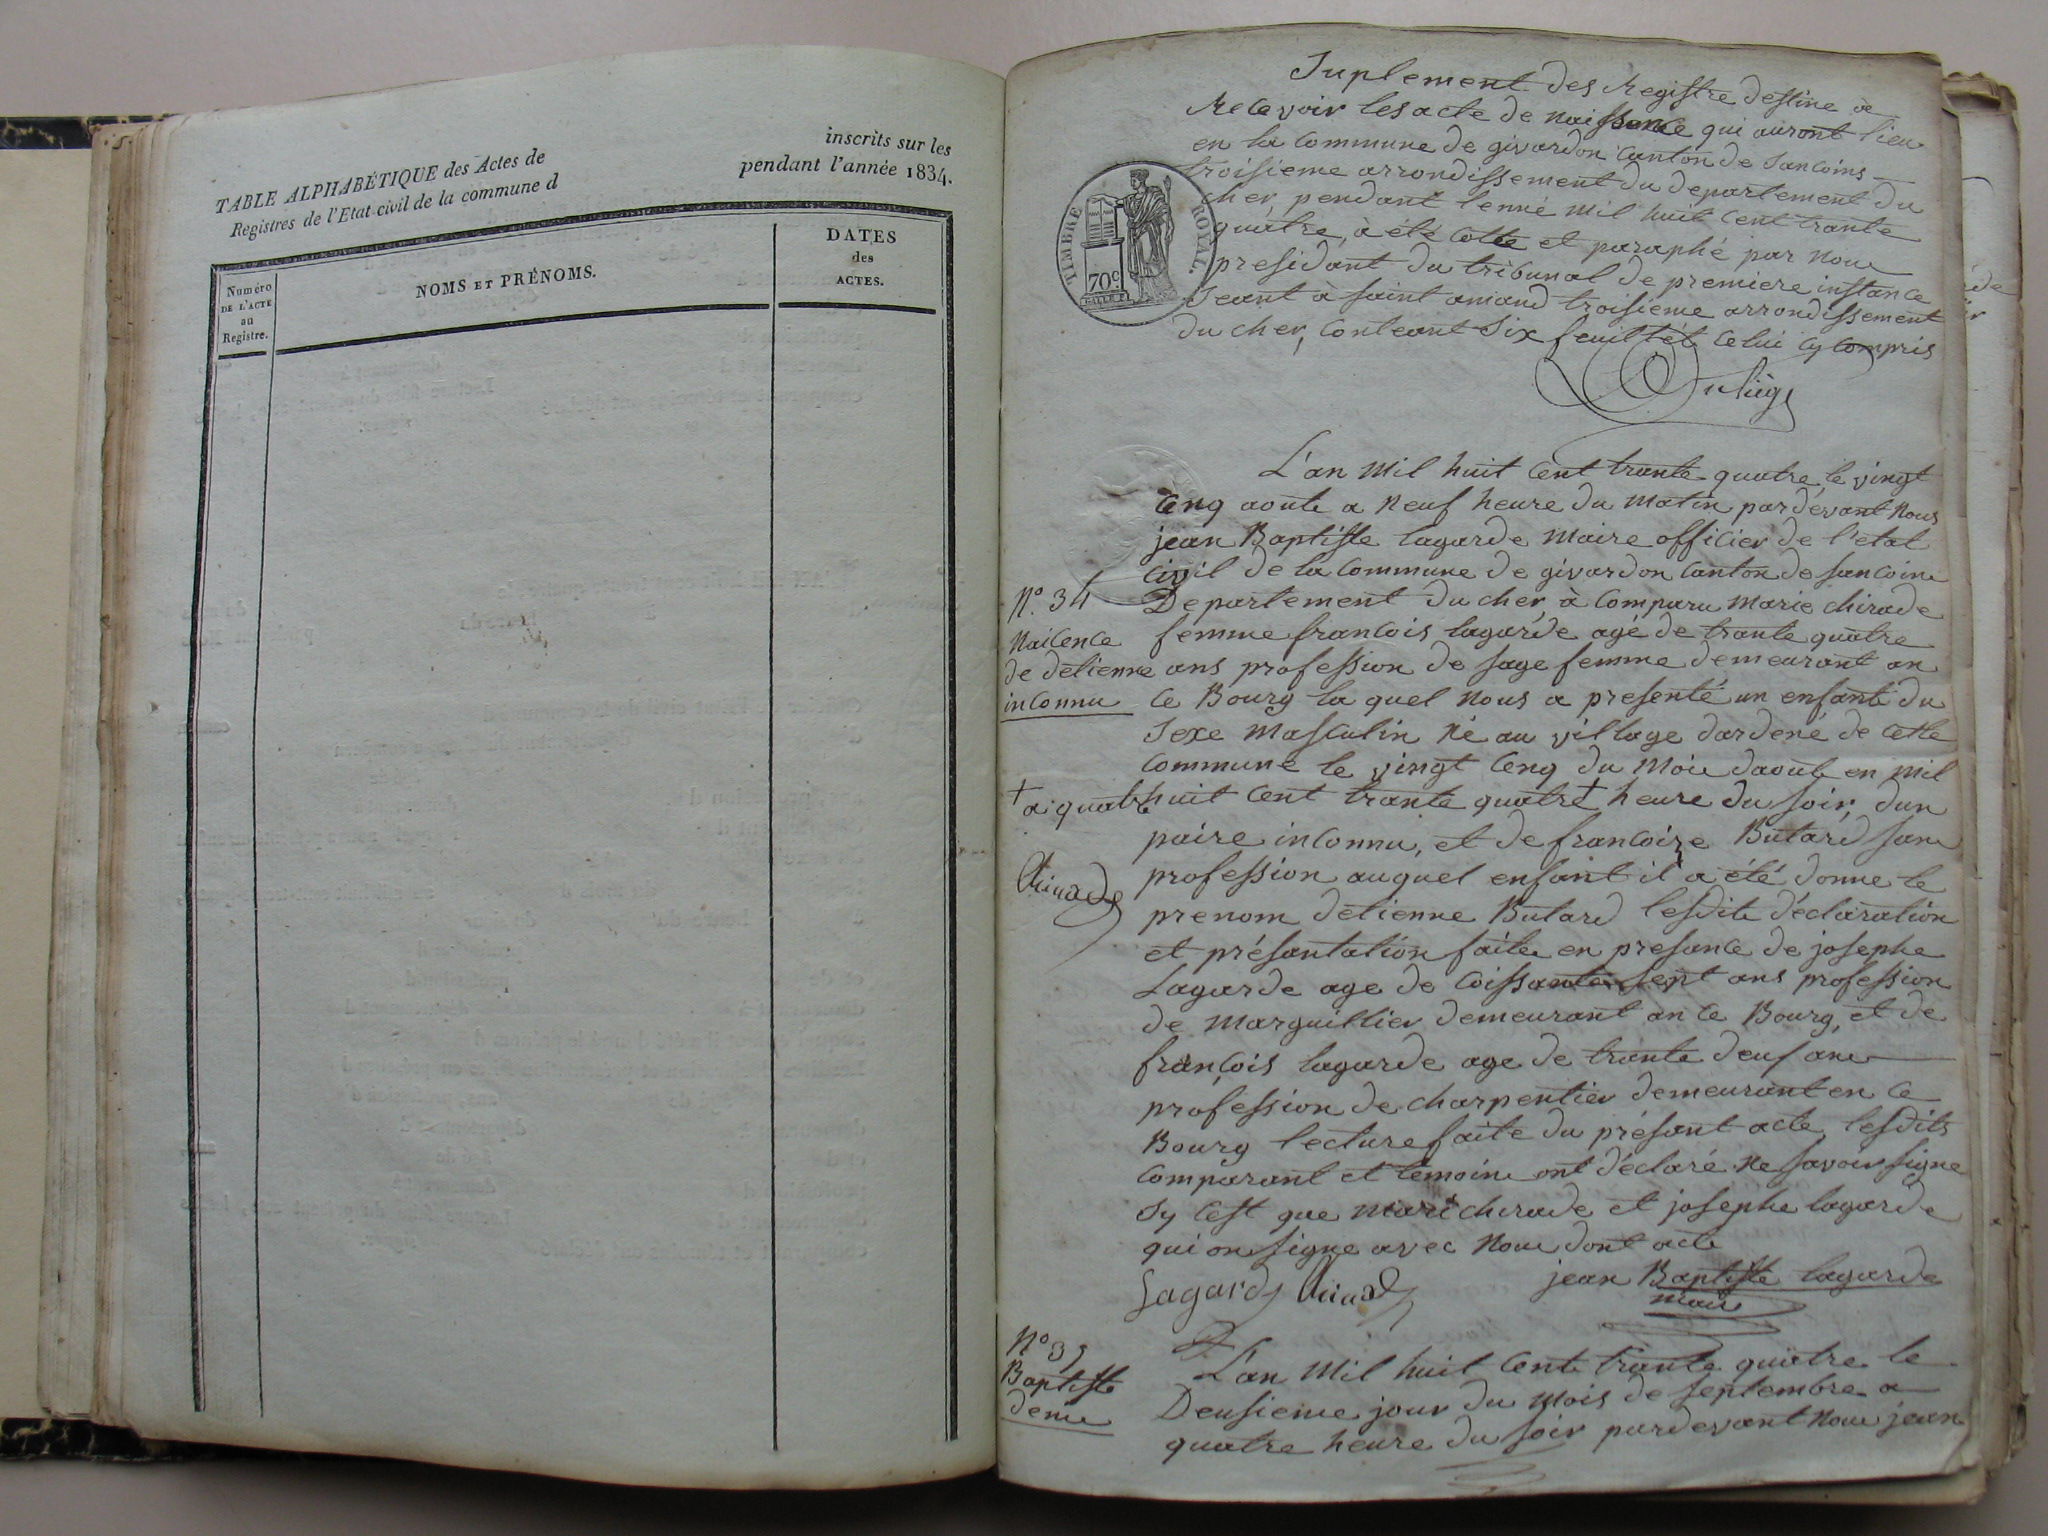 TABLE ALPHABÉTIQUE des Actes de
inscrits sur les
Registres de l'Etat civil de la commune d
pendant l'année 1834.
Numéro
DE L'ACTE
au
Registre.
NOMS ET PRÉNOMS.
DATES
des
ACTES.
Suplement des Registre destine à
Recevoir les acte de naissance qui auront lieu
en la commune de givardon canton de Sancoins
troisieme arrondissement du departement du
cher, pendant lenné mil huit cent trante
quatre, à été cotte et paraphé par nous
presidant du tribunal de premiere instance
Seant à saint amand troisieme arrondissement
du cher, conteant Six feuillet celui cy compris
TIMBRE ROYAL.
70c
L'an mil huit cent trante quatre, le vingt
cenq aoute a neuf heure du matin pardevant nous
jean Baptiste lagarde maire officier de l'etat
civil de la commune de givardon canton de sancoins
Departement du cher, à comparu marie chirade
femme francois lagarde agé de trante quatre
ans profession de sage femme demeurant an
ce Bourg la quel nous a presenté un enfant du
Sexe masculin né au village dardené de cette
commune le vingt cenq du mois daoute en mil
huit cent trante quatre † heure du soir, dun
paire inconnu, et de francoize Butard sans
profession auquel enfant il a été donne le
prenom detienne Butard lesdite déclaration
et présantation faite en presance de josephe
Lagarde age de coissante sept ans profession
de marguillier demeurant an ce Bourg, et de
françois lagarde age de trante deuf ans
profession de charpentier demeurant en ce
Bourg lecture faite du présant acte, lesdits
comparant et temoins ont déclaré ne savoir signe
sy cest que marie chirade et josephe lagarde
qui on signe avec nous dont acte
Lagarde Chirade
jean Baptiste lagarde
maire
N° 34
Naicence
de detienne
inconnu
† a quatre
Chirade
N° 35
Baptiste
denie
L'an mil huit cent trante quatre le
Deusieme jour du mois de septembre a
quatre heure du soir pardevant nous jean